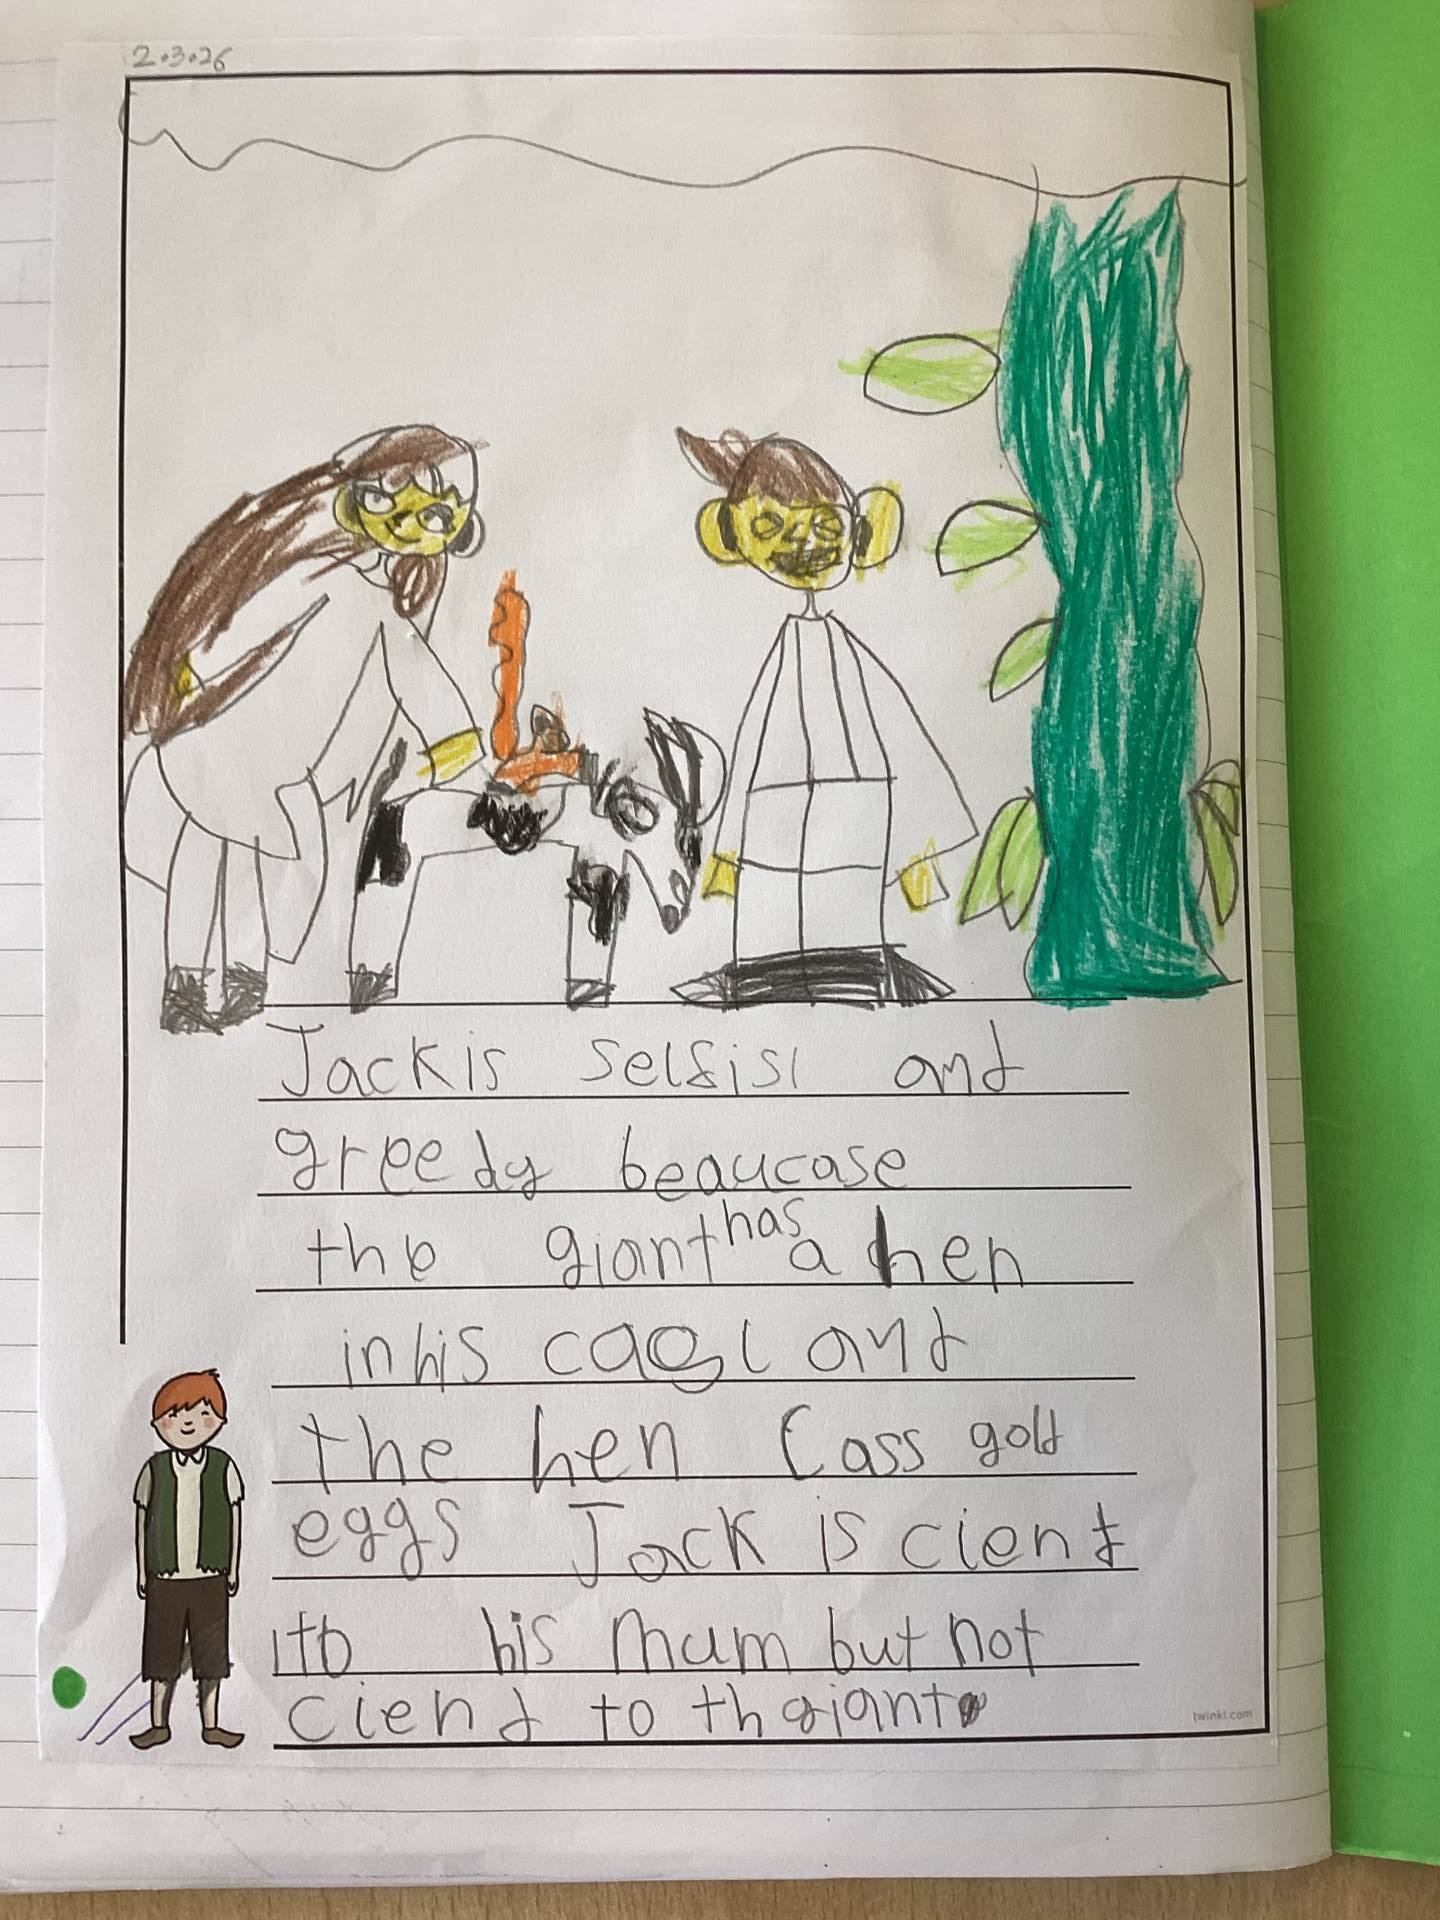 2.3.26
Jack is selfisl and
greedy beaucase
the giant has a hen
in his cagl and
the hen lass gold
eggs Jack is ciend
to his mum but not
ciend to th giant.
twinkl.com